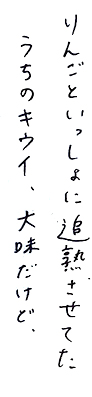 りんごといっしょに追熟させてた
うちのキウイ、大味だけど、